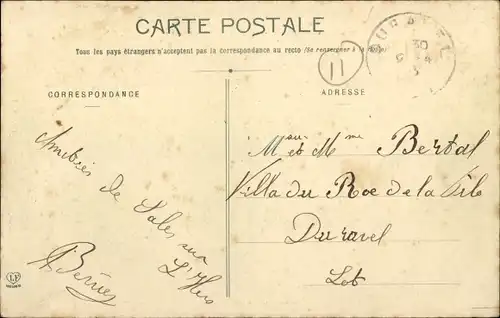 CARTE POSTALE
Tous les pays étrangers n'acceptent pas la correspondance au recto (Se renseigner à la
CORRESPONDANCE
ADRESSE
11
30
Amitiés de Sales sur
L'Hers
Mr et Mme Bertal
Villa du Roc de la
Duravel
Lot
LF